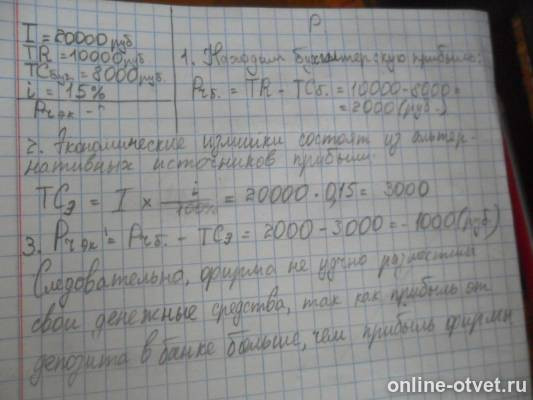 I = 20000 руб
TR = 10000 руб
TCбух. = 8000 руб.
i = 15%
Prэк - ?
Р
1. Находим бухгалтерскую прибыль:
Prб. = TR - TCб. = 10000 - 8000 =
= 2000 (руб.)
2. Экономические излишки состоят из альтер-
нативных источников прибыли.
TCэ = I × i/100% = 20000 · 0,15 = 3000
3. Prэк = Prб. - TCэ = 2000 - 3000 = -1000 (руб.)
Следовательно, фирма не удчно разместила
свои денежные средства, так как прибыль от
депозита в банке больше, чем прибыль фирмы
online-otvet.ru